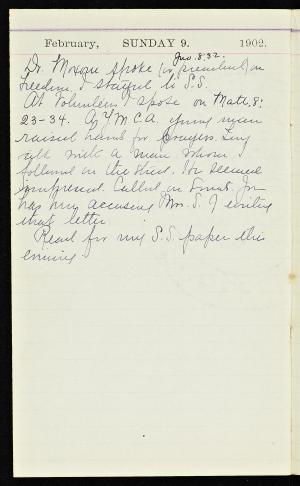 February, SUNDAY 9. 1902.
Jno. 8:32.
Dr. Moxom spoke (in president) on
freedom. I stayed to S.S.
At Volunteers I spoke on Matt. 8:
23-34. At Y M C A. young man
raised hand for prayers. Long
talk with a man whom I
followed on the street. He seemed
impressed. Called on
has my accusing Mrs. S. of writing
that letter.
Read for my S.S. paper this
evening.